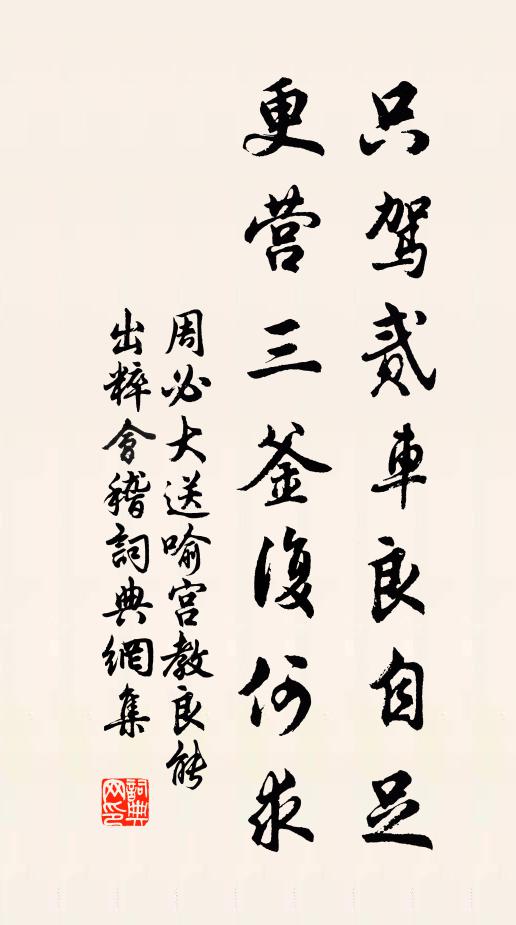 只駕貳車良自足
更营三釜復何求
周必大送喻宫教良能
出粹會稽詞典網集
詞典网印